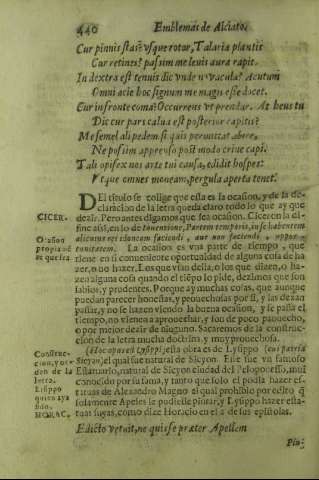 440 Emblemas de Alciato.
Cur pinnis stas? vsque rotor, Talaria plantis
Cur retines? passim me leuis aura rapit.
In dextra est tenuis dic vnde nouacula? Acutum
Omni acie hoc signum me magis esse docet.
Cur in fronte coma? Occurrens vt prendar. At heus tu
Dic cur pars calua est posterior capitis?
Me semel alipedem si quis permittat abire,
Ne possim apprenso post modo crine capi.
Tali opifex nos arte tui causa, edidit hospes:
Vtque omnes moneam, pergula aperta tenet.
DEl titulo se collige que esta es la ocasion, y de la declaracion
de la letra queda claro todo lo que ay que
CICER. dezir. Pero antes digamos que sea ocasion. Ciceron la difine
assi, en lo de Inuentione, Partem temporis, in se habentem
Ocasion alicuius rei idoneam faciendi, aut non faciendi,
propiamẽte que sea
La ocasion es vna parte de tiempo, que
tiene en si conueniente oportunidad de alguna cosa de hazer,
o no hazer. Los que van desta, o los que dizen, o hazen
alguna cosa quando el tiẽpo lo pide, dezimos que son
sabios, y prudentes. Porque ay muchas cosas, que aunque
puedan parecer honestas, y prouechosas por si, y las dexan
passar, y no se hazen viendo la buena ocasion, y se passa el
tiempo, no vienen a aprouechar, y son de poco prouecho,
o por mejor dezir de ninguno. Sacaremos de la construccion
de la letra mucha doctrina, y muy prouechosa.
Construccion, y orden de la letra.
(Hoc opus est Lysippi) esta obras de Lysippo (cui patria
Sicyon) el qual fue natural de Sicyon. Este fue vn famoso
Estatuario, natural de Sicyon ciudad del Peloponesso, mui
Lysippo quien aya sido.
conocido por su fama, y tanto que solo el podia hazer estatuas
de Alexandro Magno el qual prohibio por edito q̃
solamente Apeles le pudiesse pintar, y Lysippo hazer estatuas
HORAC. suyas, como dize Horacio en el 2. de sus epistolas.
Edicto vetuit, ne quis se præter Apellem
Pin-